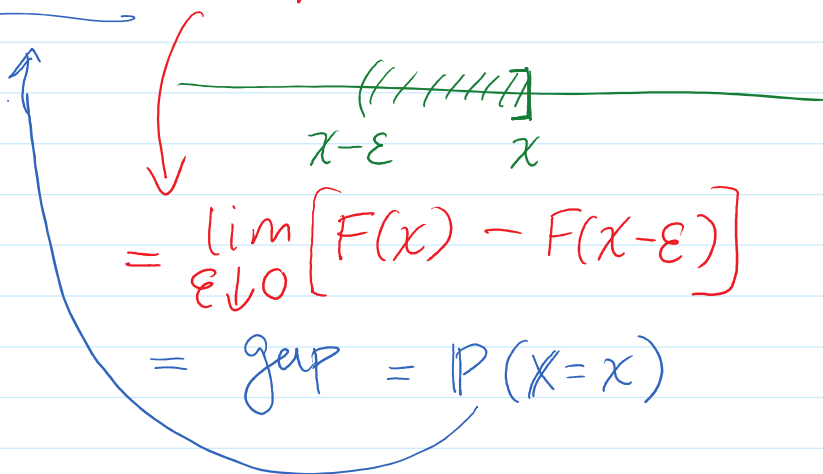 x-ε x
= lim ε↓0 [F(x) - F(x-ε)]
= gap = P(X=x)